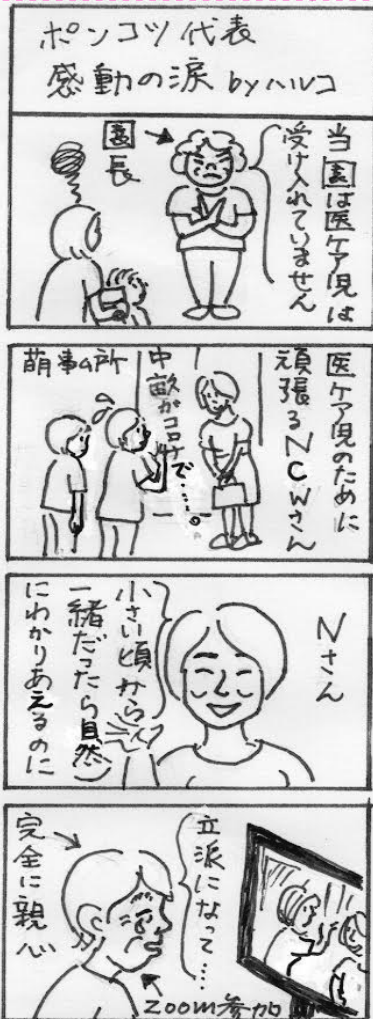 ポンコツ代表
感動の涙 byハルコ
当園は医ケア児は
受け入れていません
園長
医ケア児のために
頑張るNCWさん
中畝がコロナで……。
萌事ム所
Nさん
小さい頃から
一緒だったら自然
にわかりあえるのに
立派になって…
完全に親心
ZOOM参加